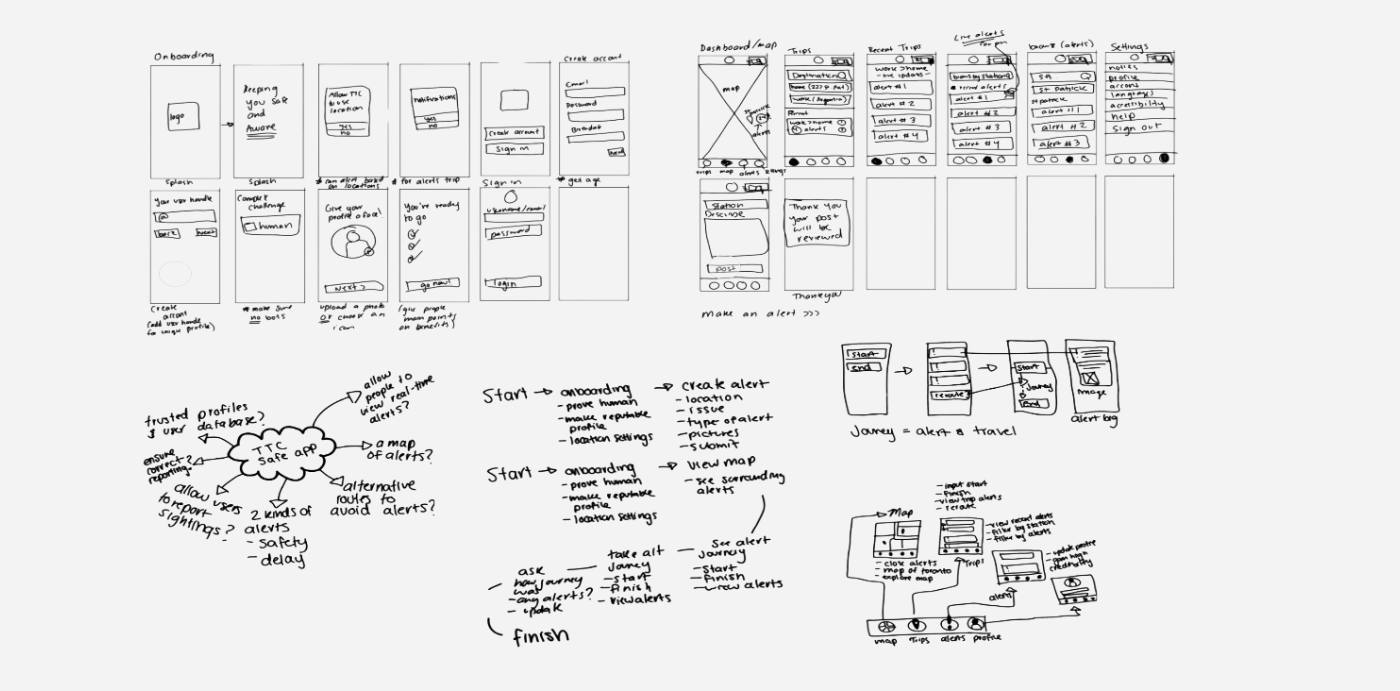 Onboarding
logo
Splash
Keeping
you safe
and
Aware
Splash
Allow TTC
to use
location
Yes
no
* can alert based
on locations
notifications
Yes
no
* for alerts trip
Create account
Sign in
Sign in
Create account
Email
Password
next
* get age
Your user handle
@
back
next
Create
account
(add user handle
for unique profile)
Complete
challenge
human
* make sure
no bots
Give your
profile a face!
Next >
upload a photo
or choose an
icon
You're ready
to go
go now!
(give people
main points
on benefits)
username/email
password
login
Dashboard/map
map
alerts
trips map alerts
Trips
Destination
work
work > home
4 alerts
Recent Trips
work > home
- live updates -
alert #1
alert #2
alert #3
alert #4
Live alerts
browse by station
alert #1
alert #2
alert #3
alert #4
browse (alerts)
st
st patrick
st patrick
alert #1
alert #2
alert #3
Settings
notifs
profile
access
languages
accessibility
help
Sign out
Station
post
Thank you
your post
will be
reviewed
Thank you
make an alert >>>
TTC
Safe app
trusted profiles
& user database?
allow
people to
view real-time
alerts?
a map
of alerts?
alternative
routes to
avoid alerts?
2 kinds of
alerts
- safety
- delay
allow users
to report
sightings?
ensure
correct?
reporting.
Start → onboarding → create alert
- prove human
- make reputable
profile
- location settings
- location
- issue
- type of alert
- pictures
- submit
Start → onboarding → view map
- prove human
- make reputable
profile
- location settings
- see surrounding
alerts
See alert
journey
- start
- finish
- view alerts
take alt
journey
- start
- finish
- view alerts
ask
how journey
was
- any alerts?
- update
finish
start
end
reroute
start
journey
end
image
alert log
Journey = alert & travel
Map
- close alerts
- map of toronto
- explore map
- input start
- finish
- view trip alerts
- reroute
Trips
- view recent alerts
- filter by station
- filter by alerts
alerts
- update profile
- credibility
map Trips alerts profile